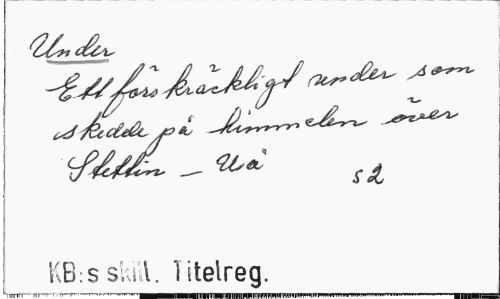 Under
Ett förskräckligt under som
skedde på himmelen över
Stettin - Uå
s 2
KB:s skill. Titelreg.